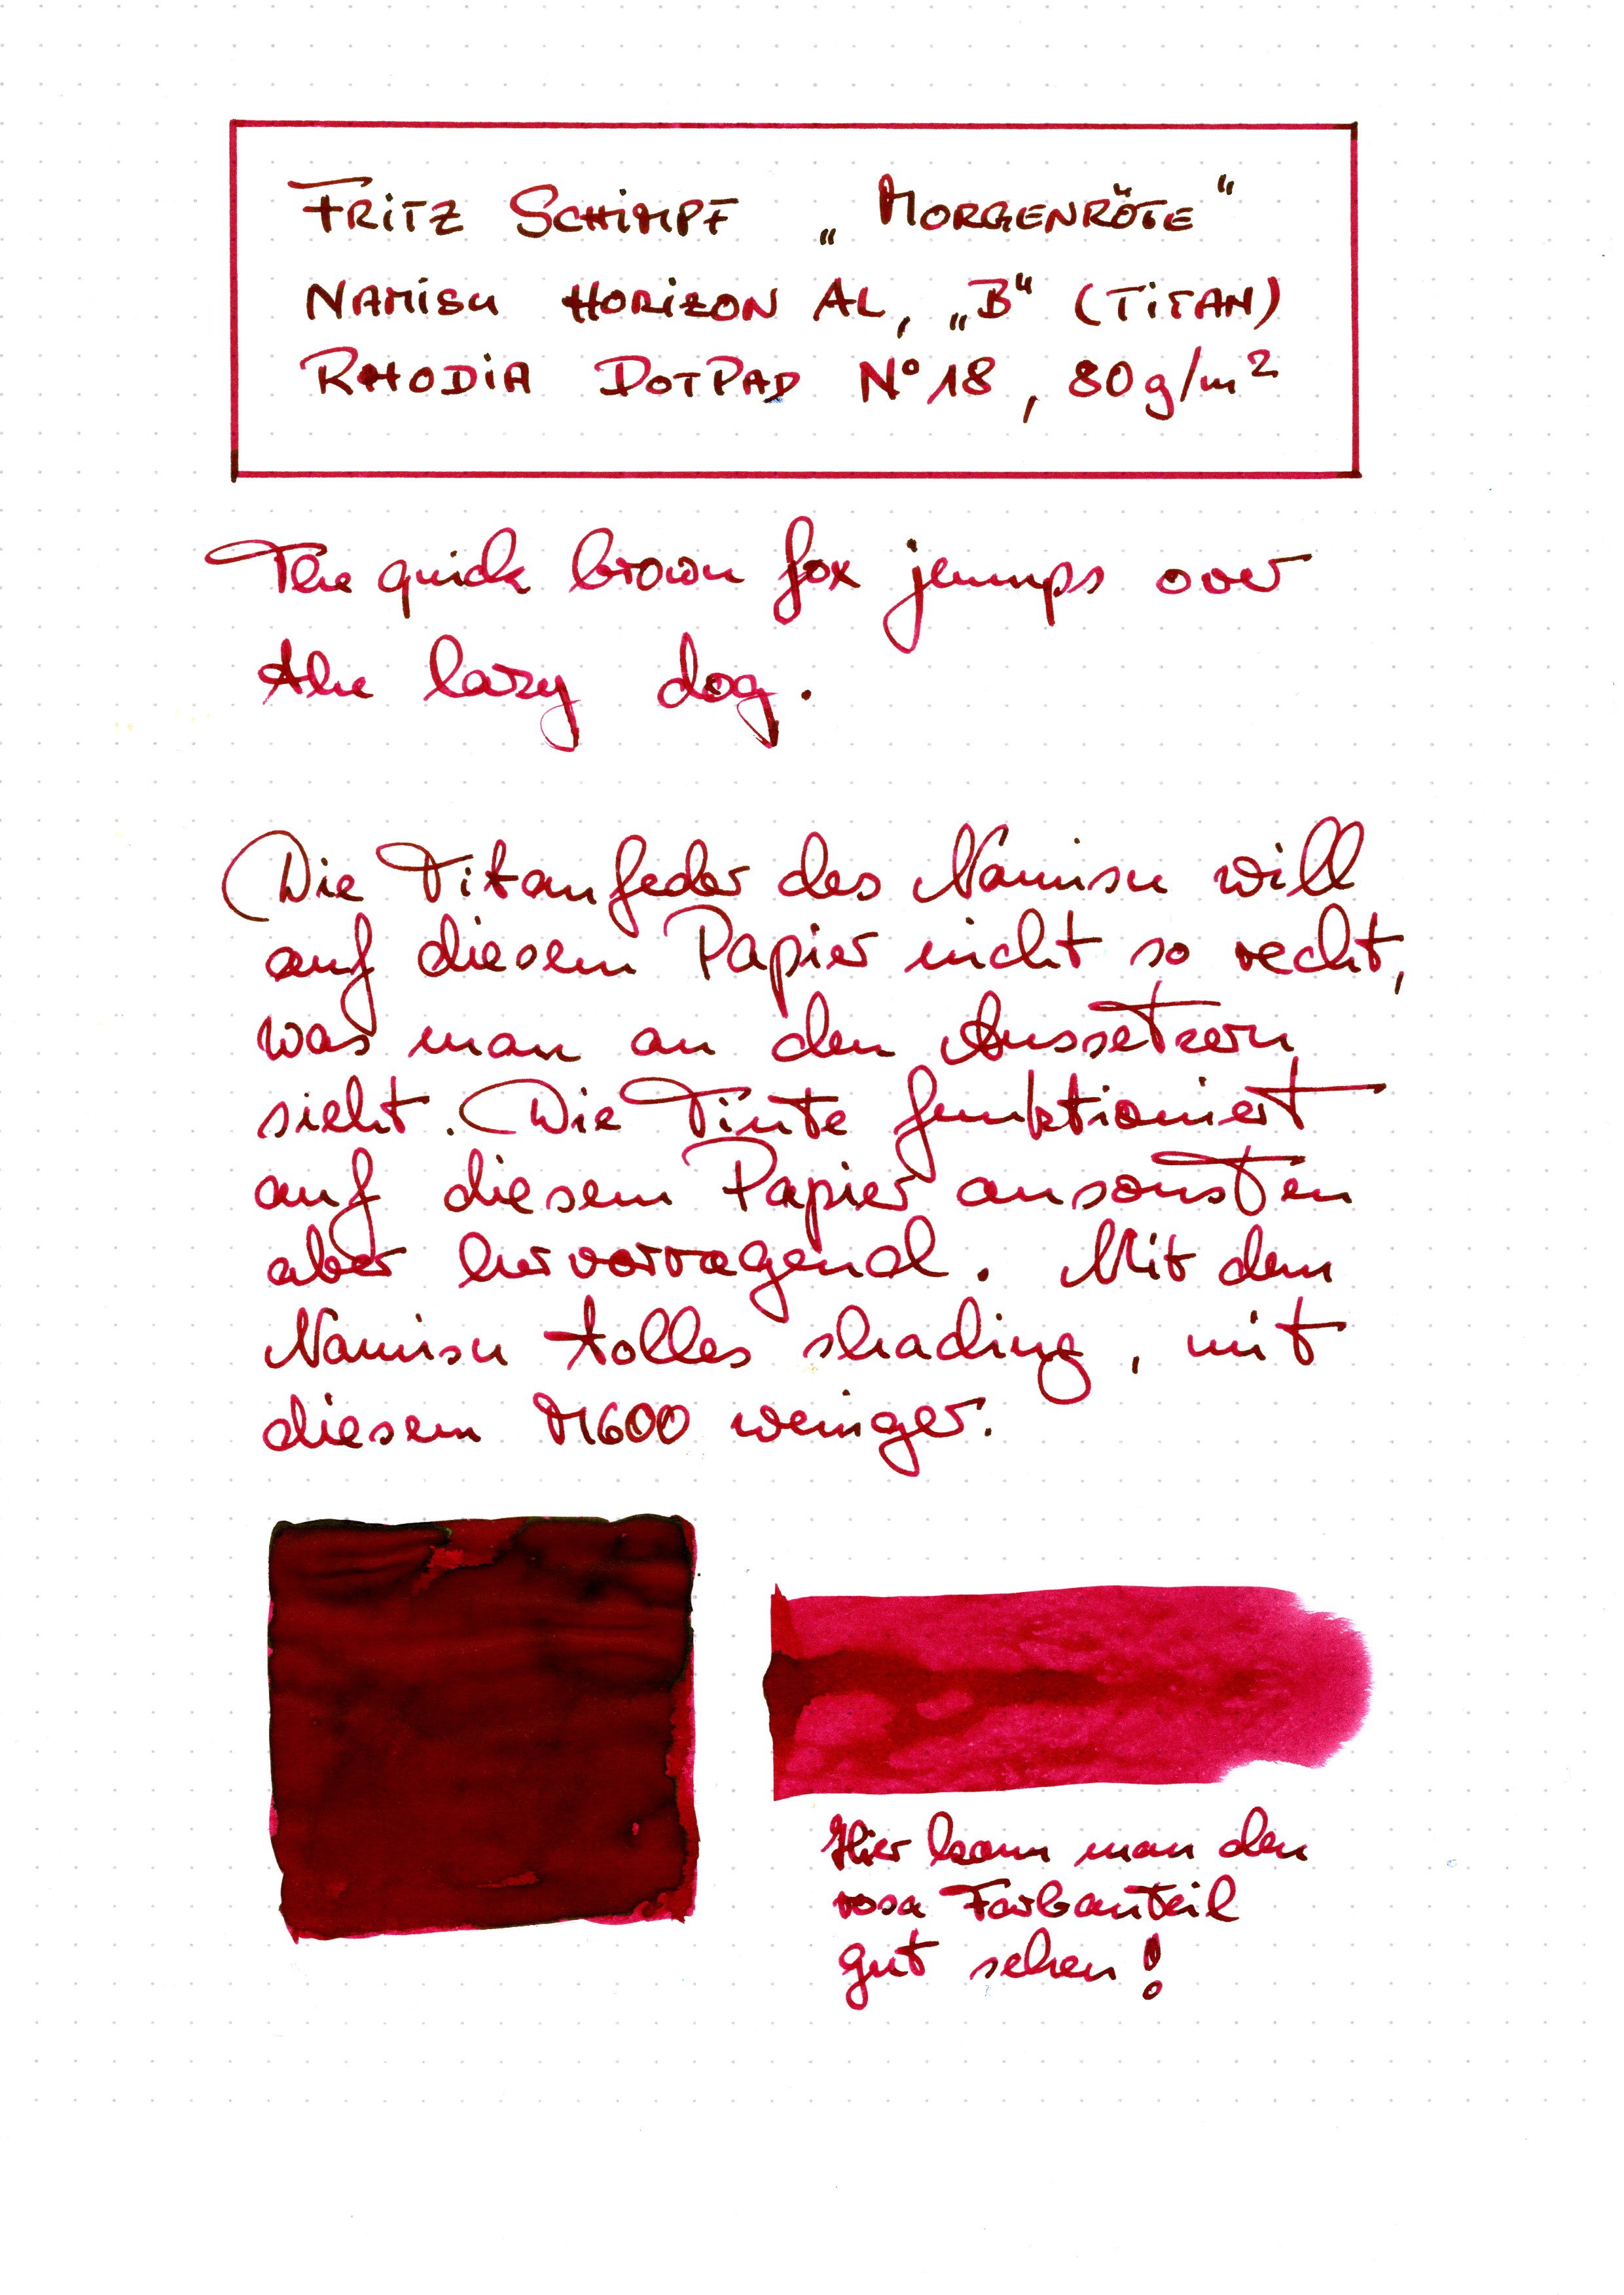 FRITZ SCHIMPF „MORGENRÖTE“
NAMISU HORIZON AL, „B“ (TITAN)
RHODIA DOTPAD N° 18, 80g/m²
The quick brown fox jumps over
the lazy dog.
Die Titanfeder des Namisu will
auf diesem Papier nicht so recht,
was man an den Aussetzern
sieht. Die Tinte funktioniert
auf diesem Papier ansonsten
aber hervorragend. Mit dem
Namisu tolles shading, mit
diesem M600 weniger.
Hier kann man den
rosa Farbanteil
gut sehen!